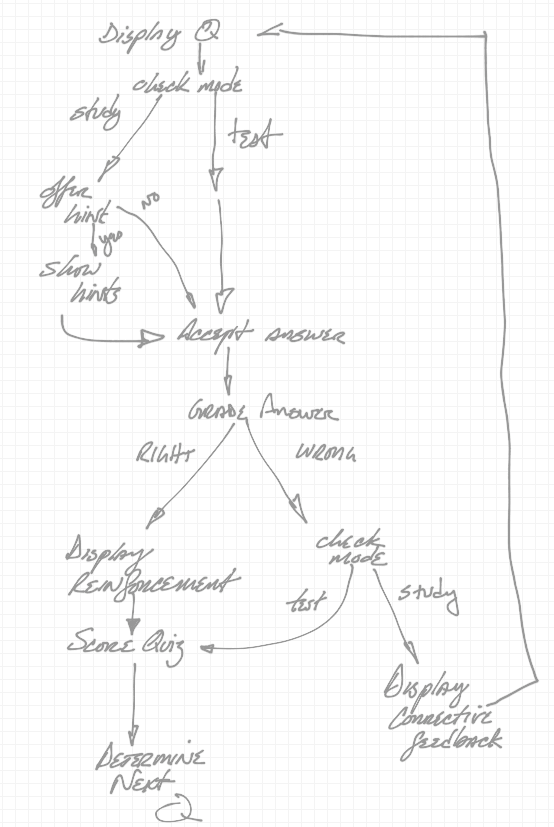 Display Q
check mode
study
test
offer
hint
No
yes
show
hints
Accept answer
Grade Answer
Right
Wrong
Display
Reinforcement
check
mode
test
study
Score Quiz
Display
Corrective
feedback
Determine
Next
Q